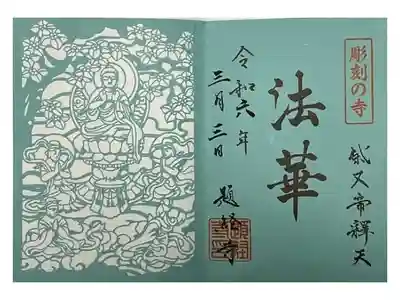 彫刻の寺
柴又帝釋天
法華
令和六年
三月三日
題経寺